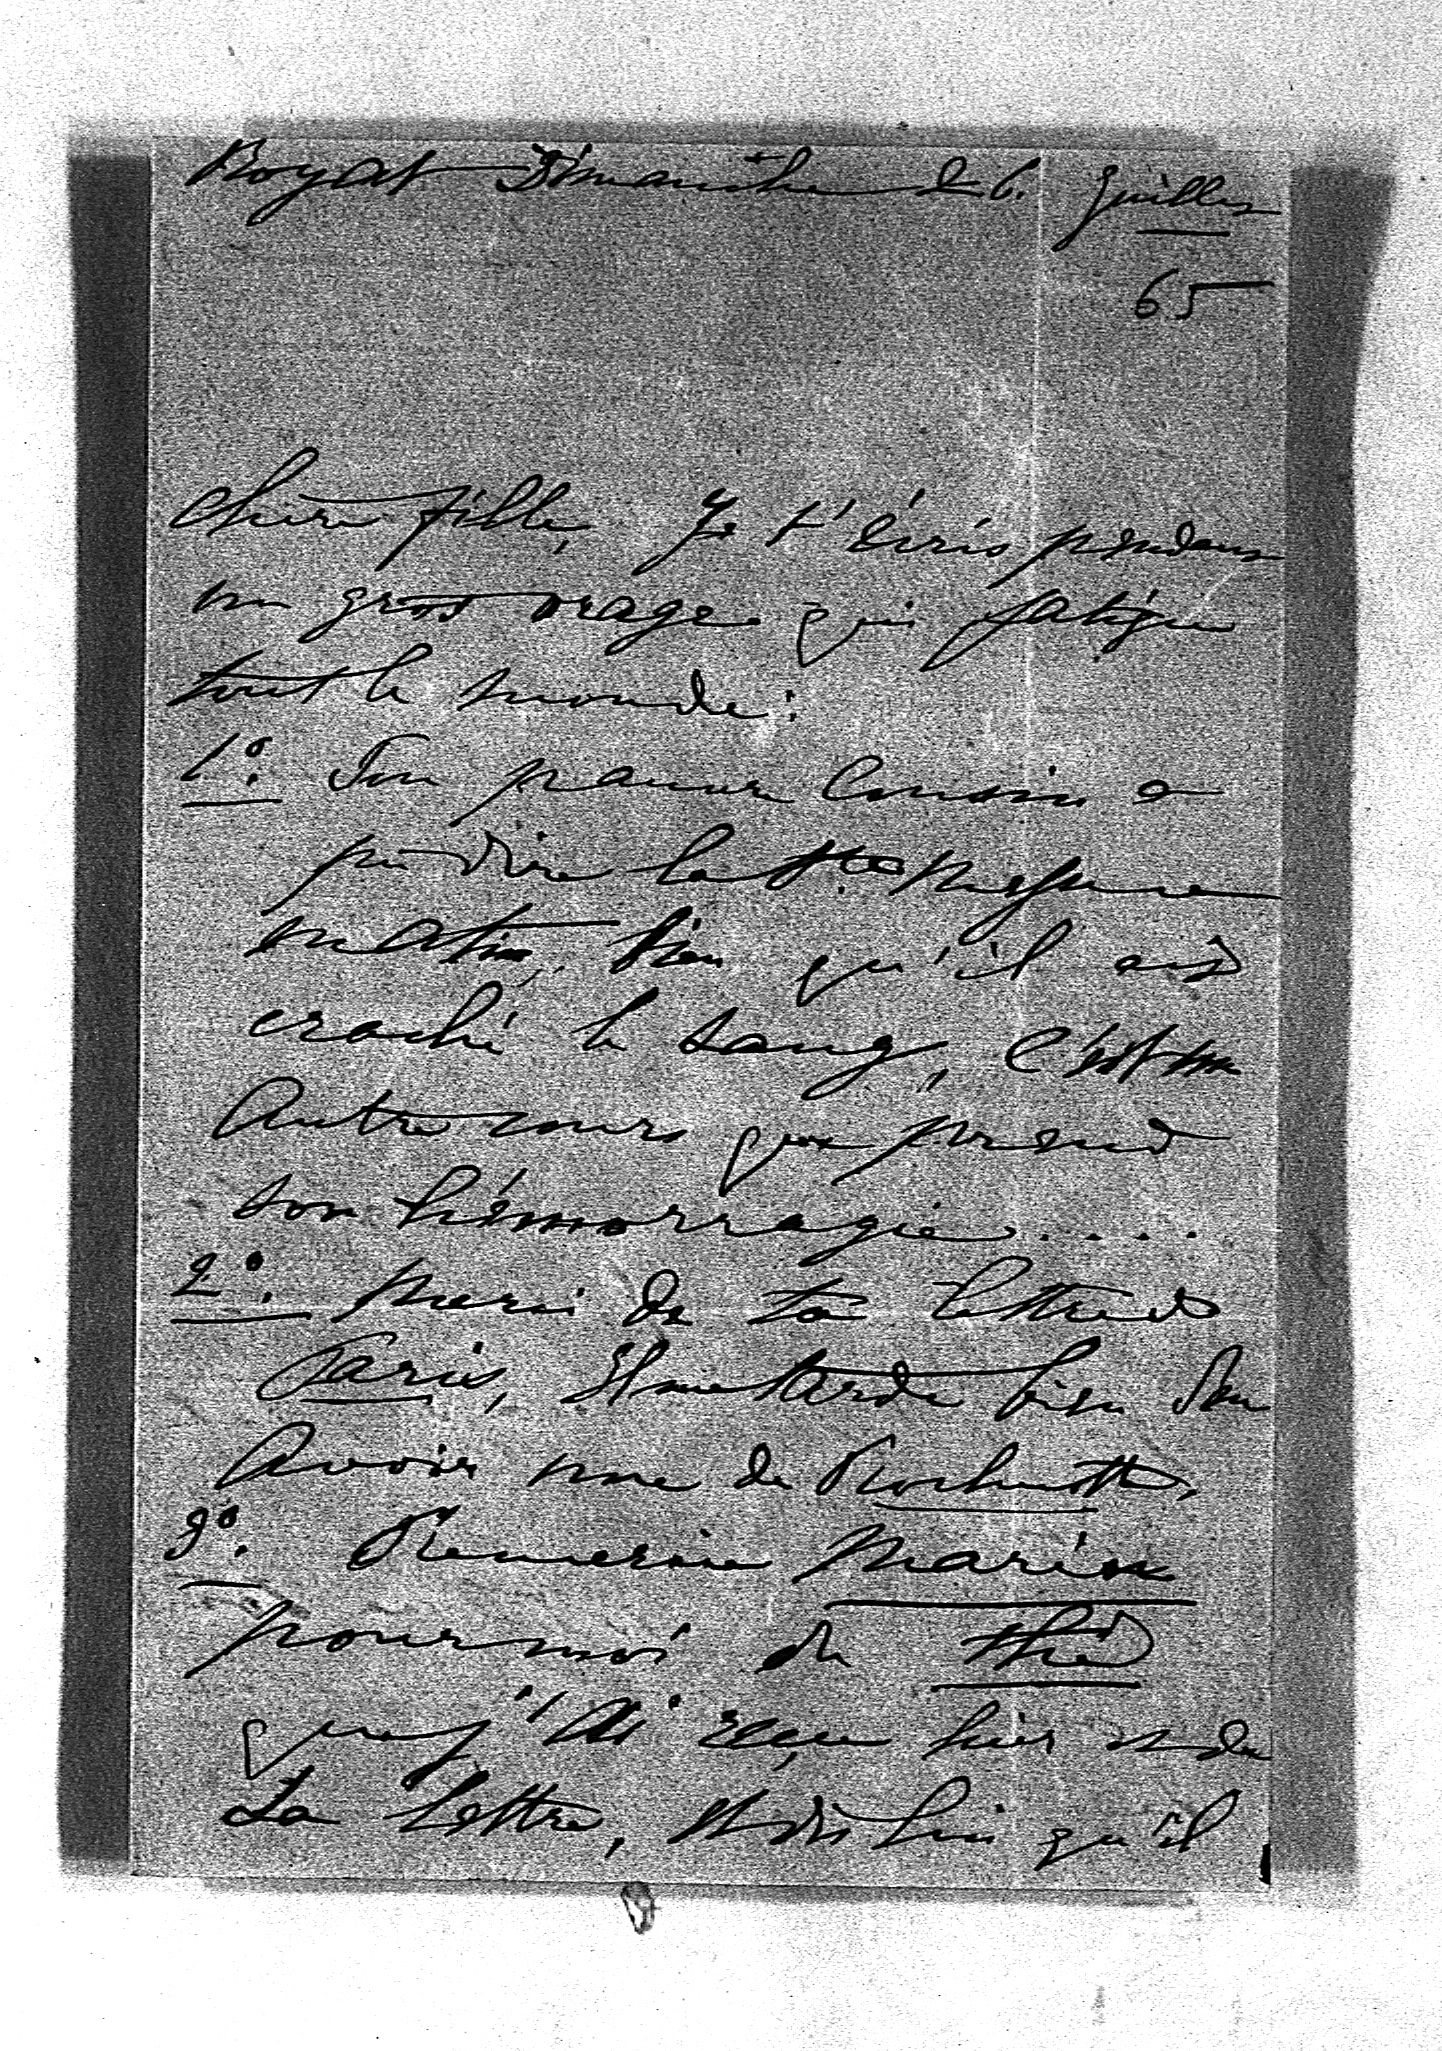 Royat Dimanche 26. Juillet
65
Chère fille, Je t'écris pendant
un gros orage qui fatigue
tout le monde:
1º. Ton pauvre Cousin a
pu dire la Ste Messe ce
matin, bien qu'il ait
craché le sang, C'est un
Autre cours que prend
son hémorragie.....
2º. Merci de ta lettre de
Paris, Il me tarde bien d'en
Avoir une de Rochette,
3º. Remercie Marin
pour moi du thé
que j'ai reçu hier et de
La lettre, et dis lui qu'il